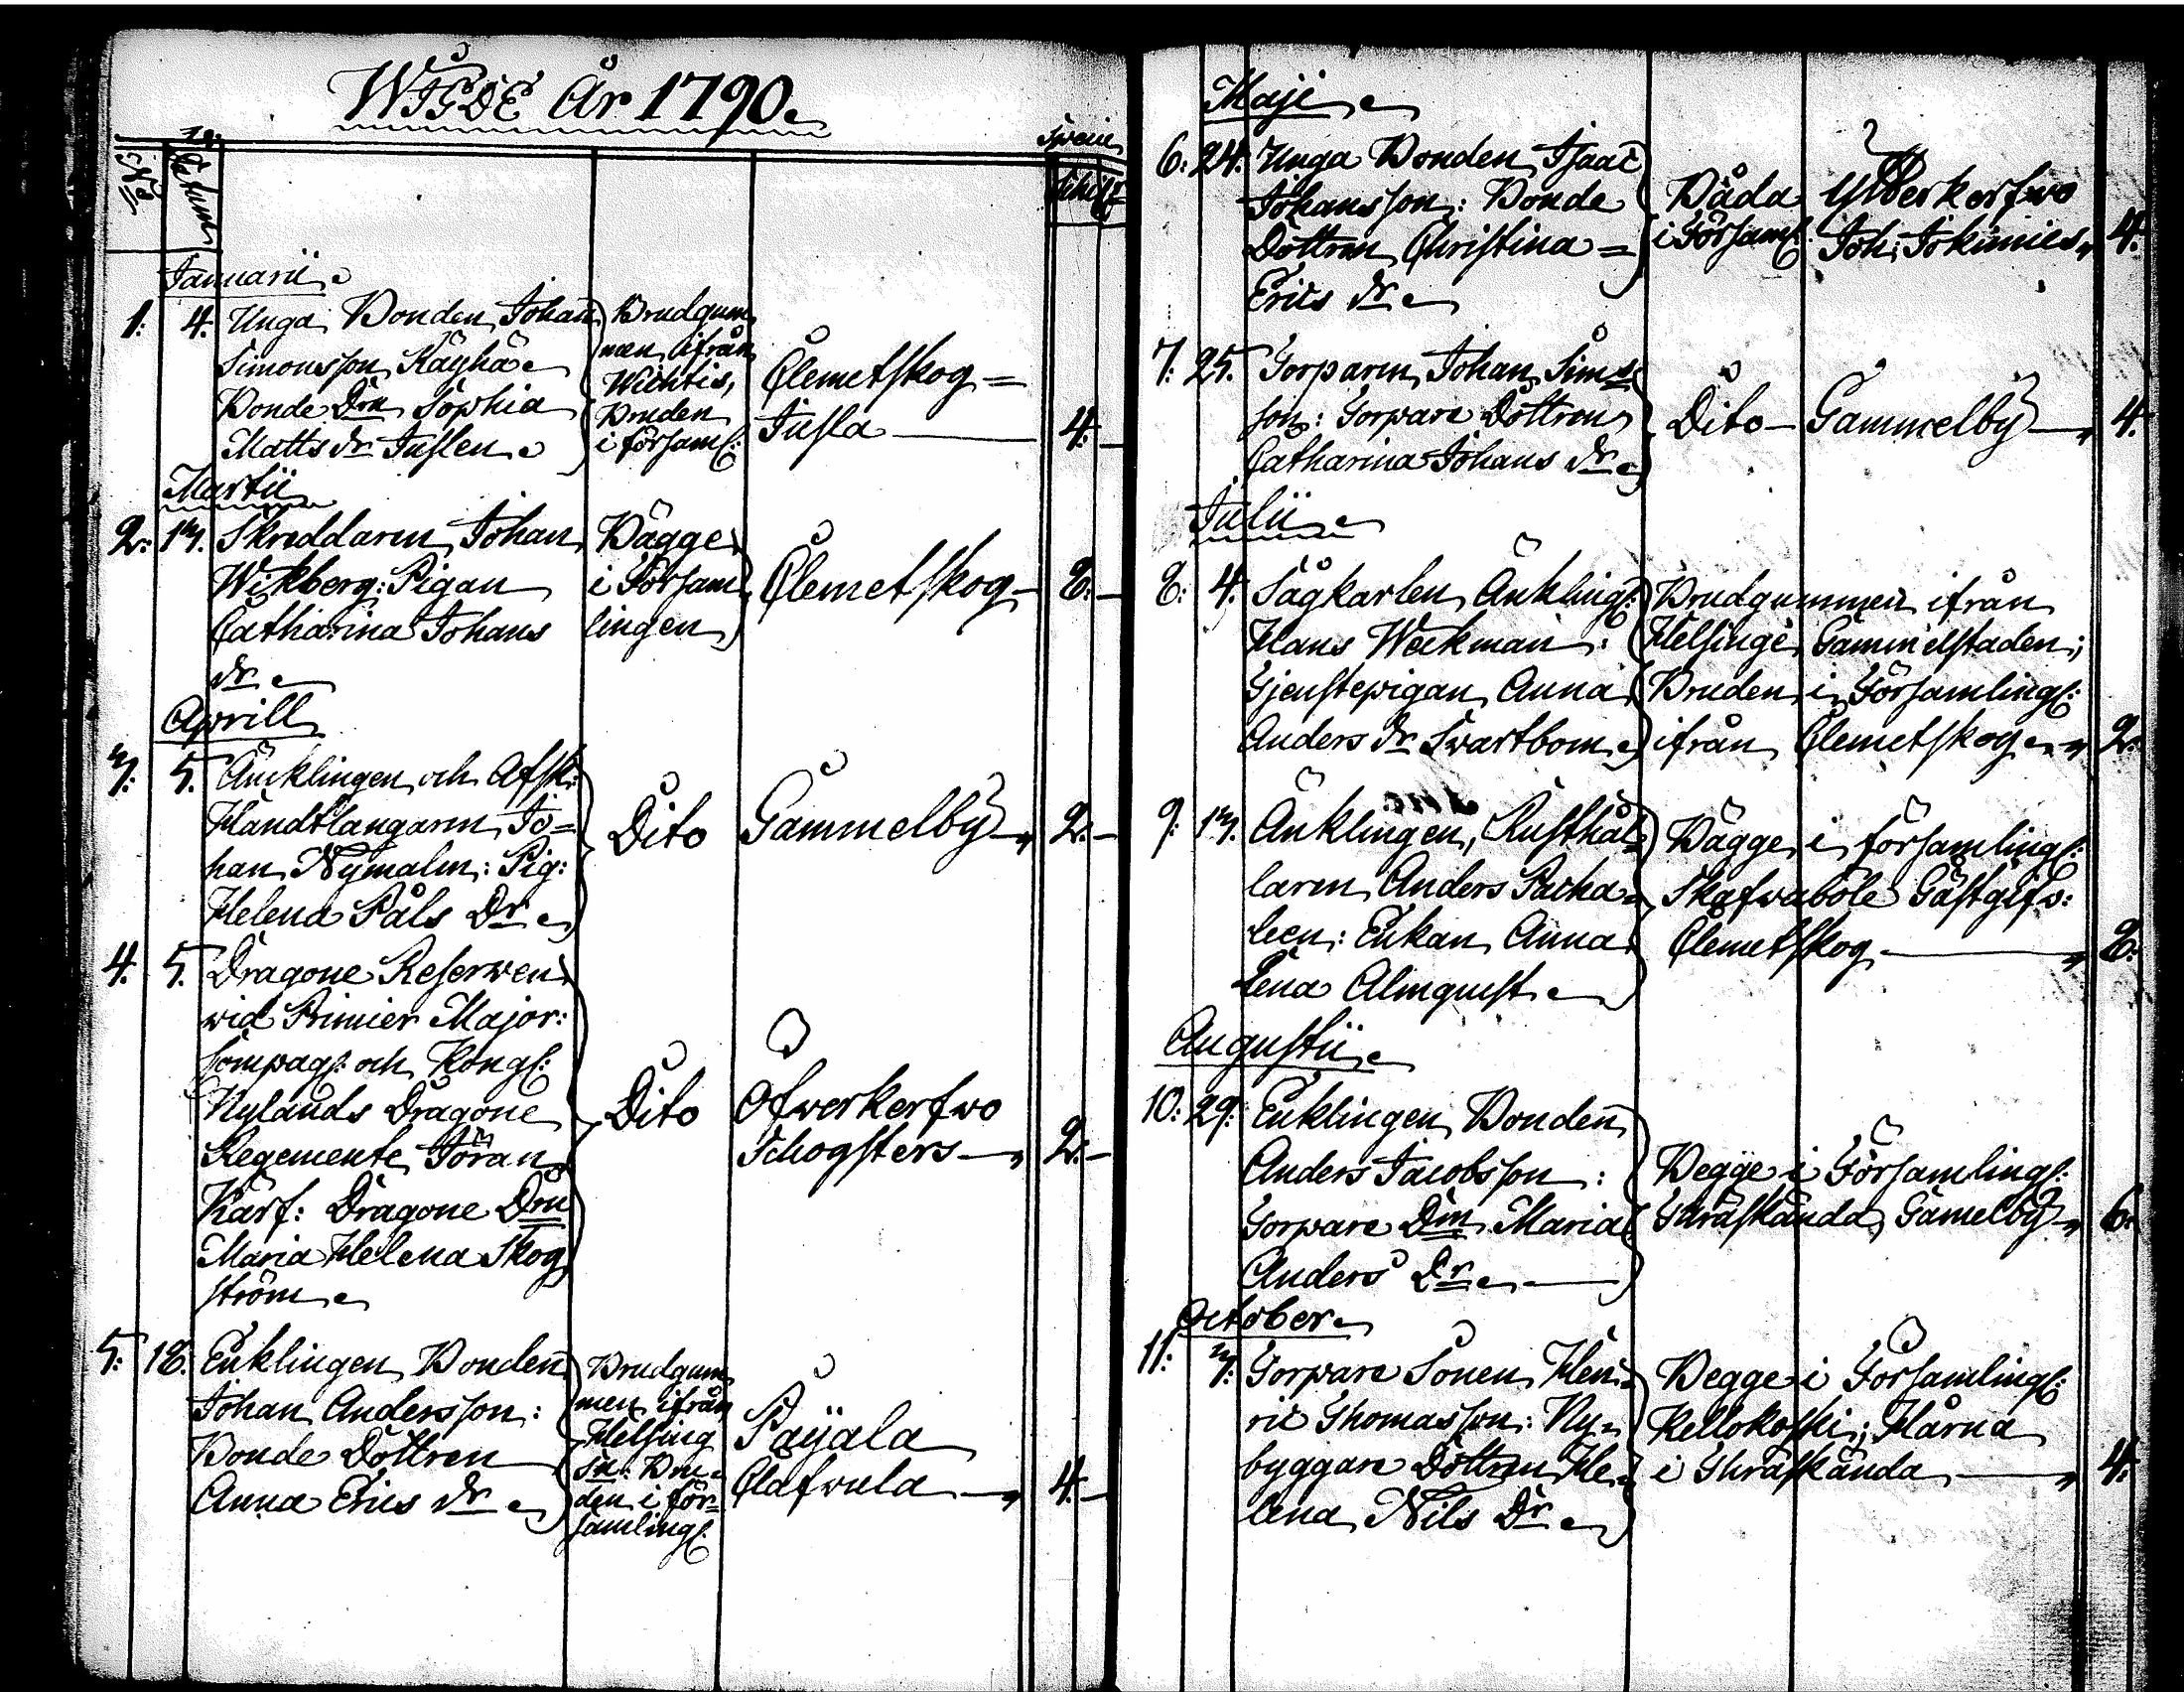 WIGDE År 1790.
No Datum Specie Schill:
Januarii
1: 4. Unga Bonden Johan
Simonsson Käyhä
Bonde Drn Sophia
Matts dr Juslen
Brudgum
men ifrån
Wichtis,
Bruden
i församl:
Clemetskog=
Jusla — 4.—
Martii
2: 13. Skreddaren Johan
Wikberg: Pigan
Catharina Johans
dr
Bägge
i Försam
lingen
Clemetskog— 8.—
Aprill
3: 5. Äncklingen och Afsk:
Handtlangaren Jo=
han Nymalm: Pig:
Helena Påls Dr
Dito Gammelby— 2.—
4. 5. Dragone Reserwen
wid Primier Major:
Compagl: och Kongl:
Nylands Dragone
Regemente Jöran
Karf: Dragone Drn
Maria Helena Skog
ström
Dito Ofwerkerfwo
Schogsters— 2.—
5: 18. Enklingen Bonden
Johan Andersson:
Bonde Dottren
Anna Erics dr
Brudgum
men ifrån
Helsing
sn: Bru=
den i för=
samlingl:
Päyälä
Olafwula— 4.—
Maji
6: 24. Unga Bonden Isaac
Johansson: Bonde
Dottren Christina=
Erics dr
Båda
i Församl:
Ylikerkerfwo
Joh: Jokimies 4.
7: 25. Torparen Johan Sims
son: Torpare Dottren
Catharina Johans dr
Dito— Gammelby— 4.
Julii
8: 4. Sågkarlen Änklingl:
Hans Weckman:
Tjenstepigan Anna
Anders dr Swartbom
Brudgummen ifrån
Helsinge Gammelstaden;
Bruden i Församlingl:
ifrån Clemetskog 2.
9: 13. Änklingen, Rusthål=
laren Anders Packa=
leen: Enkan Anna
Lena Almquist
Bägge i församlingl:
Skafwaböle Gästgifw:
Clemetskog— 8.
Augustii
10: 29. Enklingen Bonden
Anders Jacobsson:
Torpare Drn Maria
Anders Dr —
Begge i Församlingl:
Thräskända, Gamelby 6.
October
11: 3: Torpare Sonen Hen=
ric Thomasson: Ny=
byggare Dottren He=
lena Nils Dr
Begge i Församlingl:
Kellokoski; Mårna
i Thräskända,— 4.